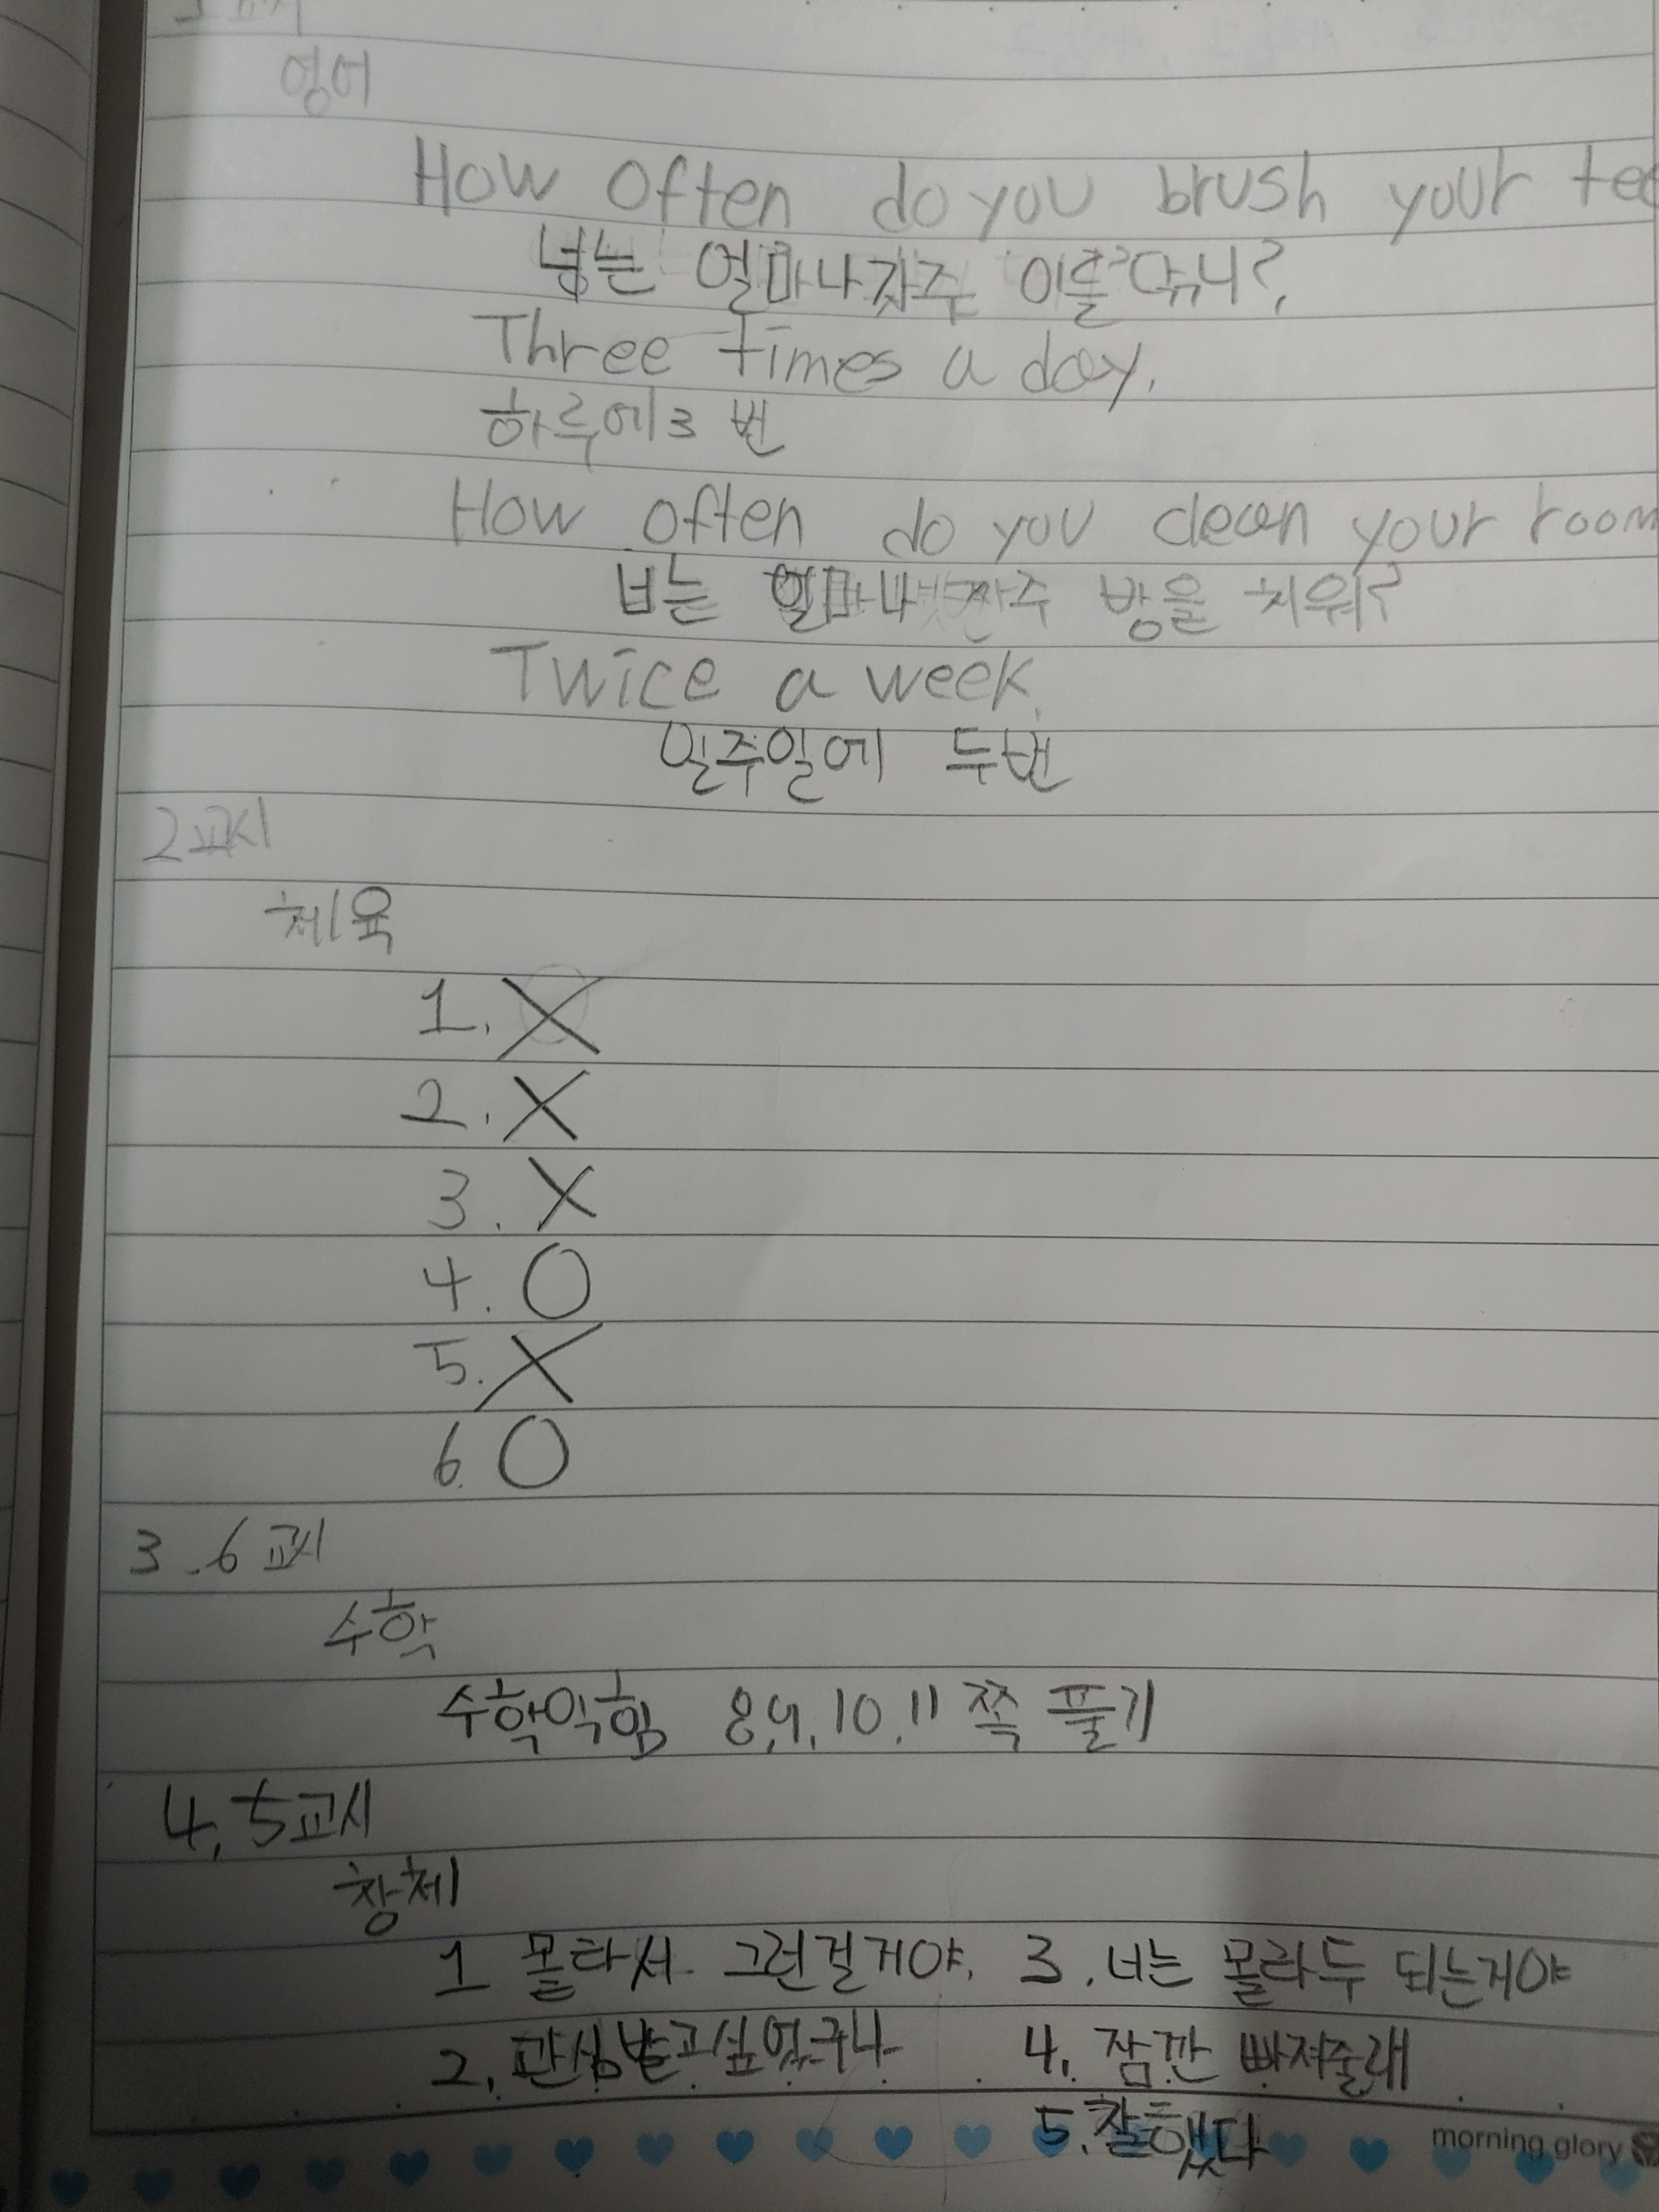 영어
How often do you brush your
너는 얼마나자주 이를 닦니?
Three times a day.
하루에3 번
How often do you clean your room
너는 얼마나 자주 방을 치워?
Twice a week.
일주일에 두번
2교시
체육
1. X
2. X
3. X
4. O
5. X
6. O
3.6교시
수학
수학익힘 8,9,10,11쪽 풀기
4,5교시
창체
1 몰라서 그런걸거야. 3.너는 몰라두 되는거야
2.관심받고싶었구나 4. 잠깐 빠져줄래
5.잘했다
morning glory